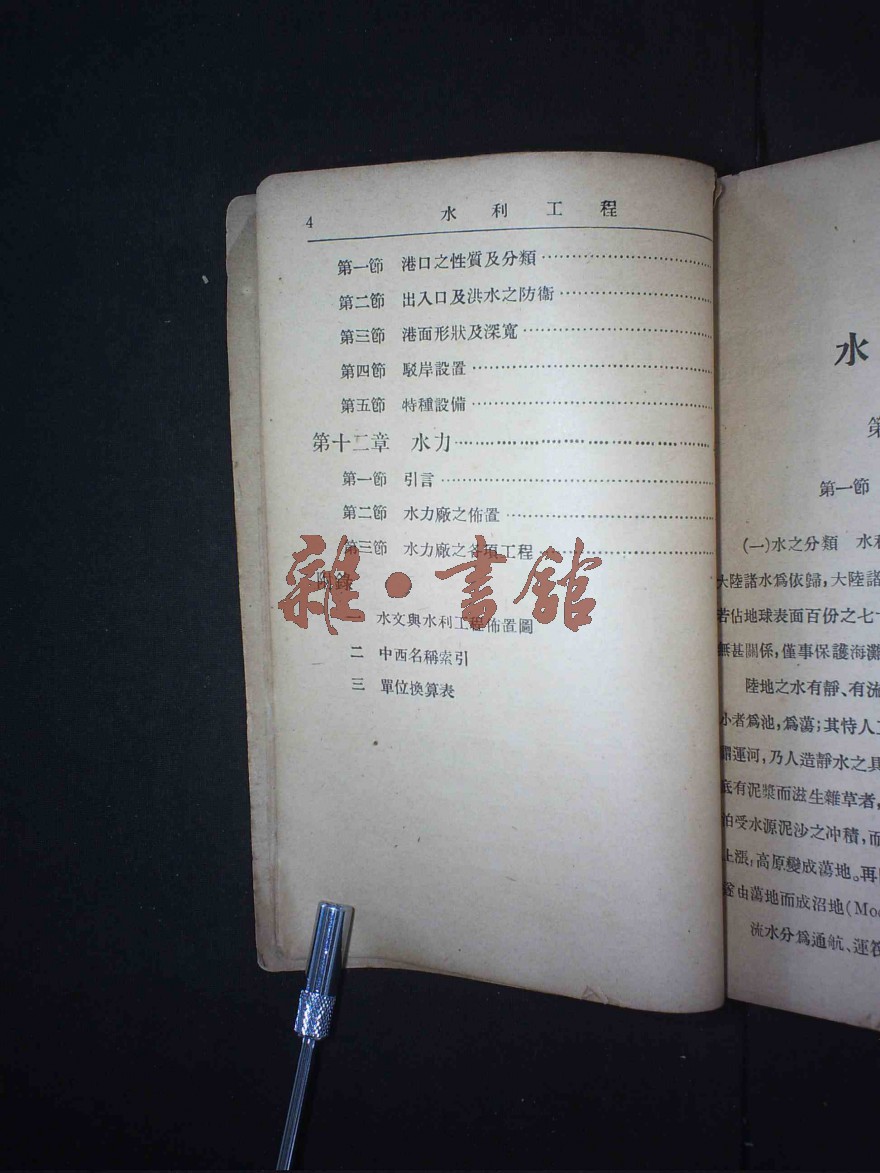 4 水利工程
第一節 港口之性質及分類
第二節 出入口及洪水之防衞
第三節 港面形狀及深寬
第四節 駁岸設置
第五節 特種設備
第十二章 水力
第一節 引言
第二節 水力廠之佈置
第三節 水力廠之各項工程
附錄
一 水文與水利工程佈置圖
二 中西名稱索引
三 單位換算表
雜·書館
水
第
第一節
(一)水之分類 水利
大陸諸水爲依歸,大陸諸
若佔地球表面百份之七十
無甚關係,僅事保護海灘
陸地之水有靜、有流
小者爲池,爲蕩;其恃人工
謂運河,乃人造靜水之具
底有泥漿而滋生雜草者,
受水源泥沙之冲積,而
上漲,高原變成蕩地。再
由蕩地而成沼地(Moo
流水分爲通航、運筏